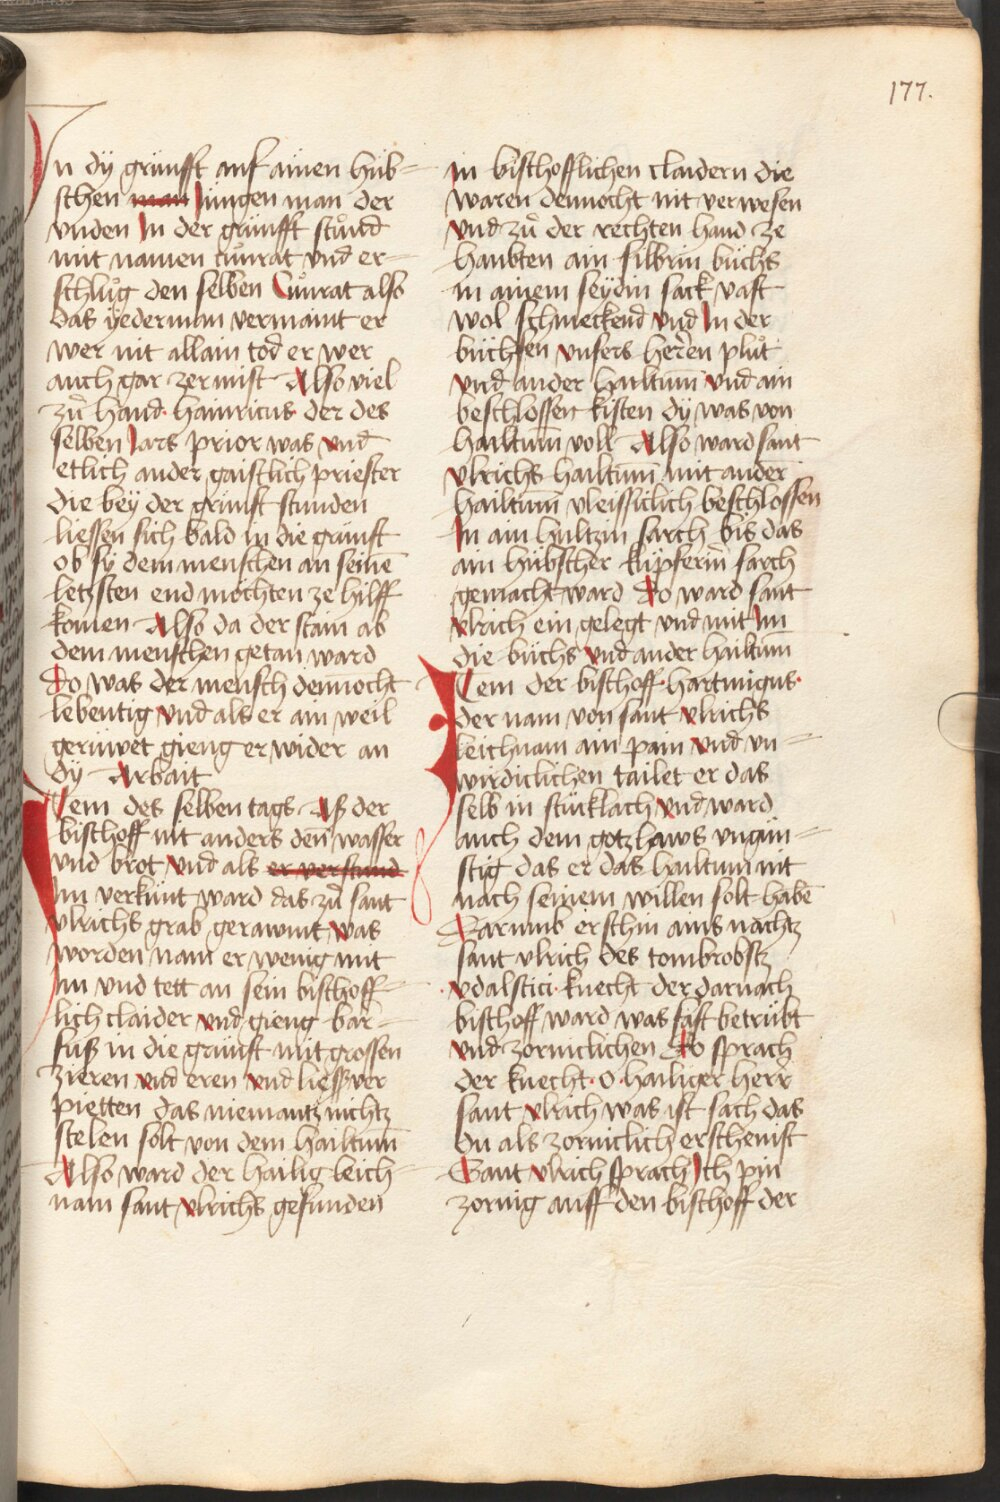 177.
In dÿ grünfft auf ainen hüb-
schen man Jüngen man der
vnden In der grünfft stůnd
mit namen Cůnrat vnd er-
schlůg den selben Cůnrat also
das ÿederman vermaint er
wer nit allain tod er wer
auch gar zermist Also viel
zů hand hainricus der des
selben Jars prior was vnd
etlich ander gaistlich priester
die bey der grünft stunden
liessen sich bald in die grünft
ob sÿ dem menschen an seinē
letzsten end möchten ze hilff
komen Also da der stain ab
dem menschen getan ward
Do was der mensch dennocht
lebentig vnd als er ain weil
gerüwet gieng er wider an
dÿ Arbait
Item des selben tags Aß der
bischoff nit anders den wasser
vnd brot vnd als er verstund
Im verkünt ward das zů sant
vlrichs grab gerawmt was
worden nam er wenig mit
Im vnd tett an sein bischoff-
lich claider vnd gieng bar-
fuß in die grünft mit grossen
zieren vnd eren vnd liess ver
pietten das niemantz nichtz
stelen solt von dem hailtum̄
Also ward der hailig leich-
nam sant vlrichs gefunden
in bischofflichen claidern die
waren dennocht nit verwesen
vnd zů der rechten hand ze
haubten ain silbrin büchs
in ainem seydin sack vast
wol schmeckend vnd In der
büchsen vnsers herren plůt
vnd ander hailtum̄ vnd ain
beschlossen kisten dÿ was von
hailtum̄ voll Also ward sant
vlrichs hailtum̄ mit ander
hailtum̄ vleissiclich beschlossen
In ain hultzin sarch bis das
ain hübscher küpferin sarch
gemacht ward Do ward sant
vlrich ein gelegt vnd mit Im
die büchs vnd ander hailtum̄
Item der bischoff hartwigus
der nam von sant vlrichs
leichnam ain pain vnd vn-
wirdiclichen tailet er das
selb in stücklach vnd ward
auch dem gotzhaws vngün-
stig das er das hailtum nit
nach seinem willen solt habē
Darumb erschin ains nachtz
sant vlrich des tombrobstz
vdalstici knecht der darnach
bischoff ward was fast betrübt
vnd zorniclichen Do sprach
der knecht o hailiger herr
sant vlrich was ist sach das
du als zorniclich erschenist
Sant vlrich sprach Ich pin
zornig auff den bischoff der